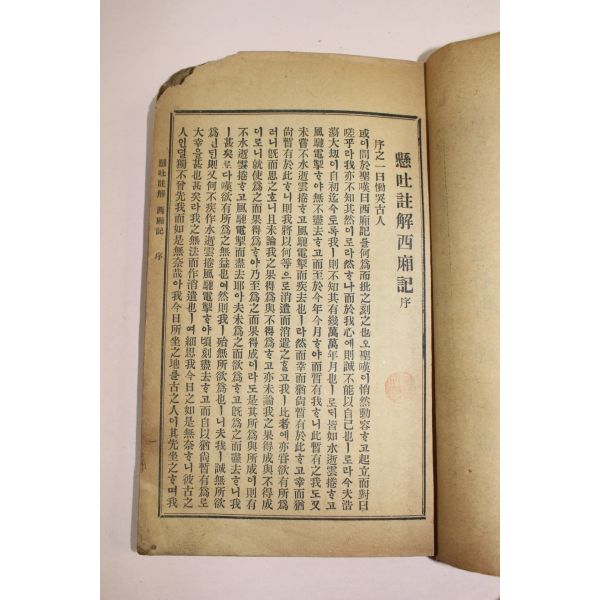 懸吐註解西廂記 序
序之一曰慟哭古人
或이問於聖嘆曰西廂記를何爲而批之刻之也오聖嘆이悄然動容ᄒᆞ고起立而對曰
嗟乎라我亦不知其然이로라然ᄒᆞ나而於我心애則誠不能以自已也ㅣ로라今夫浩
蕩大刧이自初迄今토록我ㅣ則不知其有幾萬萬年月也ㅣ로ᄃᆡ皆如水逝雲捲ᄒᆞ고
風馳電掣ᄒᆞ야無不盡去ᄒᆞ고而至於今年今月ᄒᆞ야而暫有我ᄒᆞ니此暫有之我도又
未嘗不水逝雲捲ᄒᆞ고風馳電掣而疾去也ㅣ라然而幸而猶尙暫有於此ᄒᆞ고幸而猶
尙暫有於此ᄒᆞ니則我將以何等으로消遣而消遣之ᄒᆞ고我ㅣ比者에亦嘗欲有所爲
러니旣而思之호니且未論我之果得爲與不得爲ᄒᆞ고亦未論我之果得成與不得成
이로니就使爲之而果得爲ᄒᆞ야乃至爲之而果得成이라도是其所爲與所成이則有
不水逝雲捲ᄒᆞ고風馳電掣而盡去耶아夫未爲之而欲爲ᄒᆞ고旣爲之而盡去ᄒᆞ니我
ㅣ甚矣로다嘆欲有所爲之無益也여然則我ㅣ殆無所欲爲也ㅣ니夫我ㅣ誠無所欲
爲ㄴ댄則又何不疾作水逝雲捲風馳電掣ᄒᆞ야頃刻盡去ᄒᆞ고而自以猶尙暫有爲로
大幸을甚也甚矣라我之無法而作消遣也ㅣ여細思我今日之如是無奈ᄒᆞ니彼古之
人인덜獨不曾先我而如是無奈哉아我今日所坐之地를古之人이其先坐之ᄒᆞ며我
懸吐註解 西廂記 序